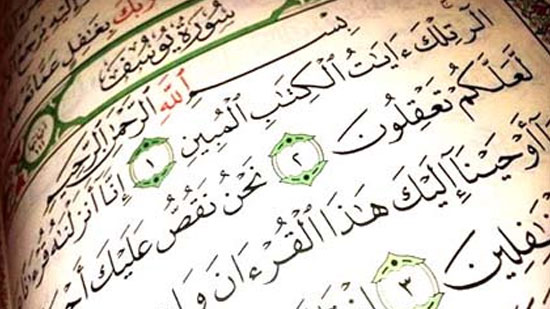 رَبُّكَ بِغَٰفِلٍ عَمَّا
سُورَةُ يُوسُفَ
بِسْمِ اللَّهِ الرَّحْمَٰنِ الرَّحِيمِ
الٓر تِلْكَ ءَايَٰتُ الْكِتَٰبِ الْمُبِينِ ١ إِنَّآ أَنزَلْنَٰهُ
لَّعَلَّكُمْ تَعْقِلُونَ ٢ نَحْنُ نَقُصُّ عَلَيْكَ
أَوْحَيْنَآ إِلَيْكَ هَٰذَا الْقُرْءَانَ
٣